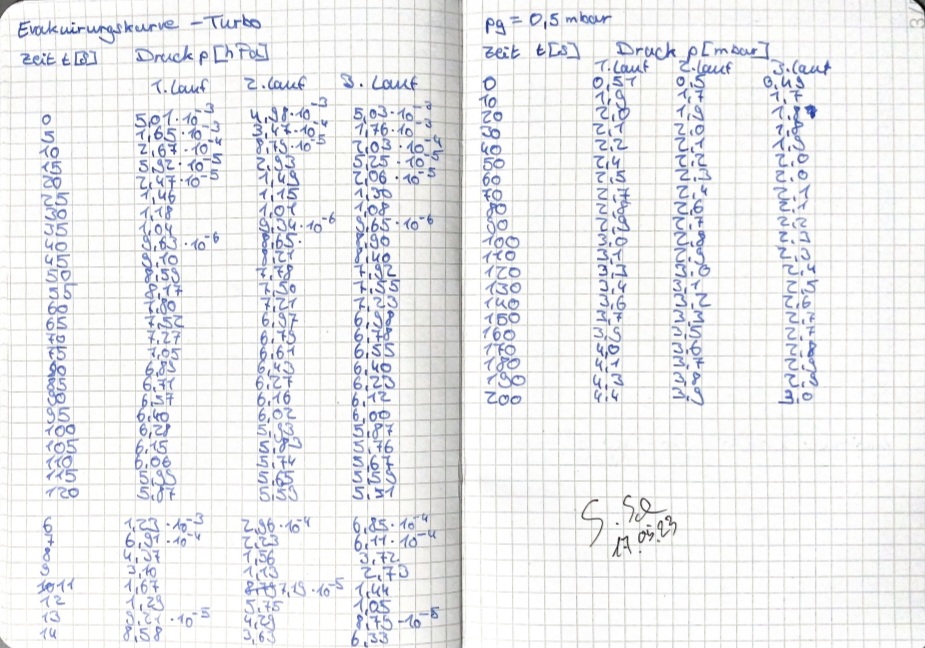 Evakuierungskurve - Turbo
Zeit t[s] Druck p [hPa]
1. Lauf 2. Lauf 3. Lauf
0 5,01·10⁻³ 4,98·10⁻³ 5,03·10⁻³
5 1,65·10⁻³ 3,47·10⁻⁴ 1,76·10⁻³
10 2,67·10⁻⁴ 8,75·10⁻⁵ 2,03·10⁻⁴
15 5,92·10⁻⁵ 2,93 5,25·10⁻⁵
20 2,47·10⁻⁵ 1,49 2,06·10⁻⁵
25 1,46 1,15 1,30
30 1,18 1,01 1,08
35 1,04 9,34·10⁻⁶ 9,65·10⁻⁶
40 9,63·10⁻⁶ 8,65· 8,90
45 9,10 8,21 8,40
50 8,59 7,78 7,92
55 8,17 7,50 7,55
60 7,80 7,21 7,23
65 7,52 6,97 6,98
70 7,27 6,75 6,78
75 7,05 6,61 6,55
80 6,85 6,43 6,40
85 6,71 6,27 6,23
90 6,57 6,16 6,12
95 6,40 6,02 6,00
100 6,28 5,93 5,87
105 6,15 5,83 5,76
110 6,06 5,74 5,67
115 5,95 5,65 5,59
120 5,87 5,53 5,51
6 1,23·10⁻³ 2,96·10⁻⁴ 6,85·10⁻⁴
7 6,91·10⁻⁴ 2,23 6,11·10⁻⁴
8 4,37 1,56 3,72
9 3,10 1,13 2,73
11 1,67 7,19·10⁻⁵ 1,44
12 1,29 5,75 1,05
13 9,21·10⁻⁵ 4,29 8,75·10⁻⁵
14 8,58 3,63 6,33
pg = 0,5 mbar
Zeit t[s] Druck p [mbar]
1. Lauf 2. Lauf 3. Lauf
0 0,51 0,5 0,49
10 1,9 1,7 1,7
20 2,0 1,9 1,8
30 2,1 2,0 1,9
40 2,2 2,1 1,9
50 2,4 2,2 2,0
60 2,5 2,3 2,0
70 2,7 2,4 2,1
80 2,8 2,6 2,1
90 2,9 2,7 2,2
100 3,0 2,8 2,3
110 3,1 2,9 2,3
120 3,3 3,0 2,4
130 3,4 3,1 2,5
140 3,6 3,2 2,6
150 3,7 3,3 2,7
160 3,9 3,5 2,7
170 4,0 3,6 2,8
180 4,1 3,7 2,8
190 4,3 3,8 2,9
200 4,4 3,9 3,0
17.05.23